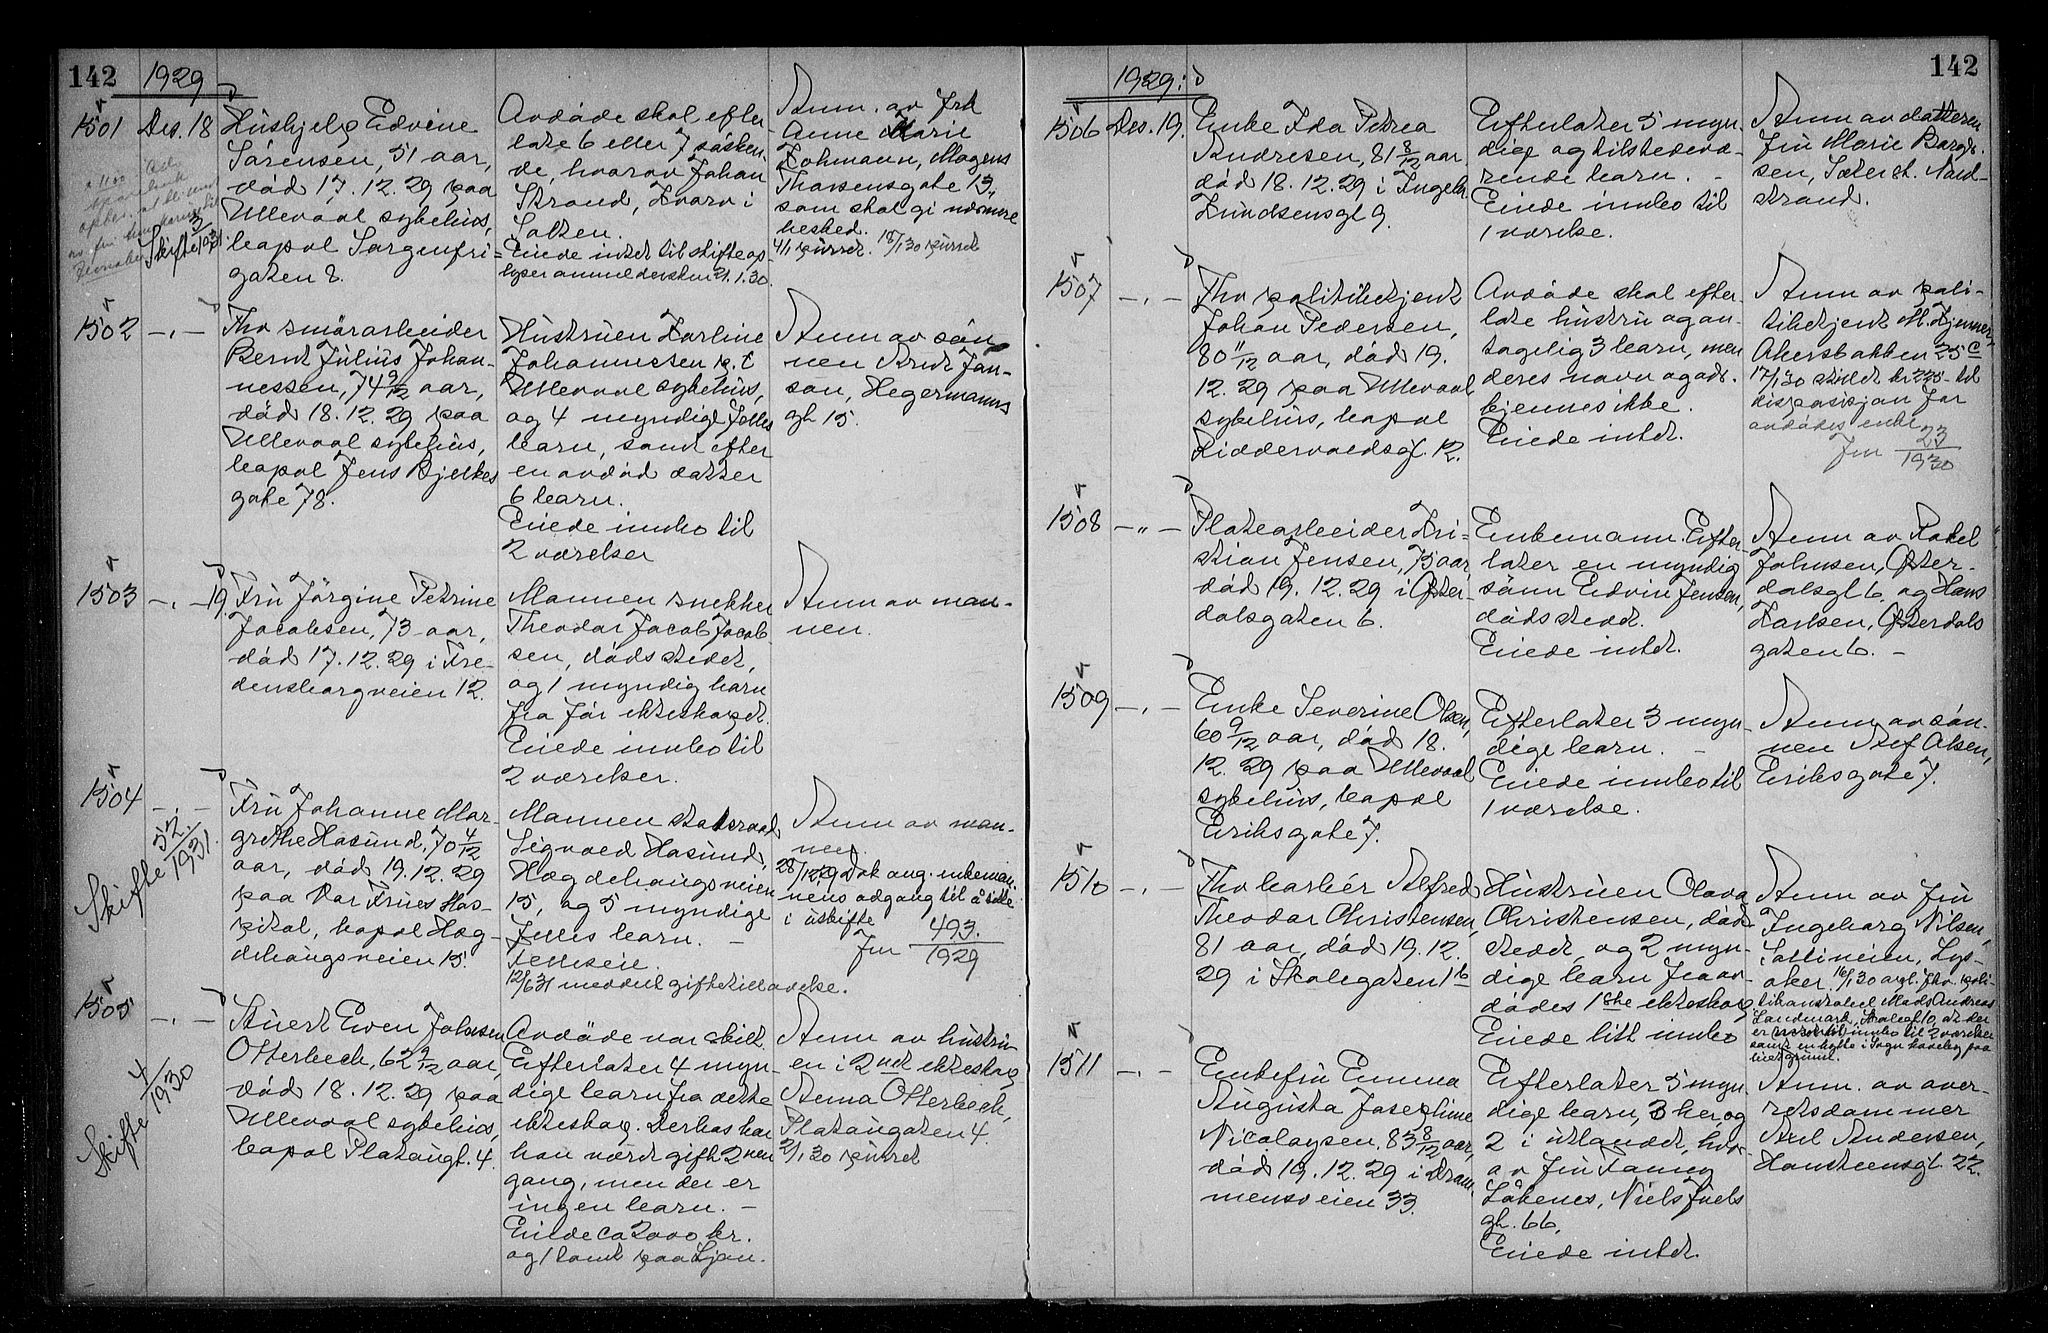 142
1929
1501 Des. 18
Skifte 3/1931
Hushjelp Edvine
Sørensen, 51 aar,
död 17.12.29 paa
Ullevaal sykehus,
bopæl Sorgenfri=
gaten 8.
Avdøde skal efter-
late 6 eller 7 søsken-
de, hvorav Johan
Strand,
Eiede intet til skifte op-
lyser anmeldersken 21.1.30.
Anm. av frk
Anne Marie
Lohmann, Mogens
Thorsensgate 13,
som skal gi nærmere
besked.
4/1 purret. 18/1 30 purret
1502 -„-
Fhv smørarbeider
Bernt Julius Johan-
nessen, 74 9/12 aar,
död 18.12.29 paa
Ullevaal sykehus,
bopæl Jens Bjelkes
gate 78.
Hustruen Karline
Johannessen p.t
Ullevaal sykehus,
og 4 myndige fælles
barn, samt efter
en avdöd datter
6 barn.
Eiede innbo til
2 værelser
Anm av søn
nen Arnt Jan-
son, Hegermanns
gt 15.
1503 -„- 19.
Fru Jörgine Petrine
Jacobsen, 73 aar,
död 17.12.29 i Fre-
densborgveien 12.
Mannen snekker
Theodor Jacob Jacob
sen, dødsstedet,
og 1 myndig barn
fra før ekteskapet.
Eiede innbo til
2 værelser.
Anm av man-
nen.
1504 -„-
Skifte 52/1931.
Fru Johanne Mar-
grethe Hasund, 70 4/12
aar, död 19.12.29
paa Vor Frues Hos-
pital, bopæl Hæg-
dehaugsveien 15.
Mannen statsraad
Sigvald Hasund,
Hægdehaugsveien
15, og 5 myndige
felles barn. -
Felleseie.
12/6 31 meddelt giftetillatelse.
Anm av man-
nen.
28/12 29 Dok ang. enkeman-
nens adgang til å sitte
i uskifte
Jnr 493/1929
1505 -„-
Skifte 4/1930
Stuert Even Johnsen
Otterbech, 62 2/12 aar,
död 18.12.29 paa
Ullevaal sykehus,
bopæl Platougt. 4.
Avdöde var skilt.
Efterlater 4 myn-
dige barn fra dette
ekteskap. Derhos har
han været gift 2nen
gang, men der er
ingen barn. -
Eiede ca 2000 kr.
og 1 tomt paa Ljan.
Anm av hustru-
en i 2net ekteskap
Anna Otterbech,
Platougaten 4.
2/1 30 purret
142
1929:
1506 Des. 19.
Enke Ida Petrea
Andresen, 81 8/12 aar
död 18.12.29 i Ingebr
Knudsensgt 9.
Efterlater 5 myn-
dige og tilstedevæ-
rende barn. -
Eiede innbo til
1 værelse.
Anm av datteren
Fru Marie Borge-
sen, Sæter st. Nord-
strand.
1507 -„-
Fhv politibetjent
Johan Pedersen,
80 11/12 aar, död 19.
12.29 paa Ullevaal
sykehus, bopæl
Riddervoldsgt. 12.
Avdöde skal efter-
late hustru og an-
tagelig 3 barn, men
deres navn og adr.
kjennes ikke.
Eiede intet.
Anm av poli-
tibetjent M. Fjennes,
Akersbakken 25c
17/1 30 skiftet kr 225- til
disposisjon for
avdödes enke
Jnr 23/1930
1508 -„-
Platearbeider Kri-
stian Jensen, 75 aar,
död 19.12.29 i Øster-
dalsgaten 6.
Enkemann. Efter-
later en myndig
sønn Edvin Jensen,
dødsstedet.
Eiede intet.
Anm av Rakel
Johnsen, Øster-
dalsgt 6. og Hans
Karlsen, Østerdals
gaten 6. -
1509 -„-
Enke Severine Olsen,
60 9/12 aar, död 18.
12.29 paa Ullevaal
sykehus, bopæl
Eriksgate 7.
Efterlater 3 myn-
dige barn. -
Eiede innbo til
1 værelse.
Anm av søn-
nen Alf Olsen,
Eriksgate 7.
1510 -„-
Fhv barbér Alfred
Theodor Christensen,
81 aar, död 19.12.
29 i Skolegaten 1b
Hustruen Olava
Christensen, døds
stedet, og 2 myn-
dige barn fra av-
dødes 1ste ekteskap
Eiede litt innbo
Anm av fru
Ingeborg Nilsen,
Sollineien, Lys-
aker. 16/1 30 avgl. fhv. poli-
tikonstabel Mads Andreas
Landmark, Skolegt 10, at der
er innbo til 2 værelser
samt en hytte i Sogn haveby paa
leiet grunn.
1511 -„-
Enkefru Emma
Augusta Josephine
Nicolaysen. 83 8/12 aar,
död 19.12.29 i Dram
mensveien 33.
Efterlater 5 myn-
dige barn, 3 her, og
2 i utlandet, hvor-
av fru Fanny
Låkenes, Niels Juels
gt. 66.
Eiede intet.
Anm. av over-
retsdommer
Axel Andersen,
Hansteensgt. 22.